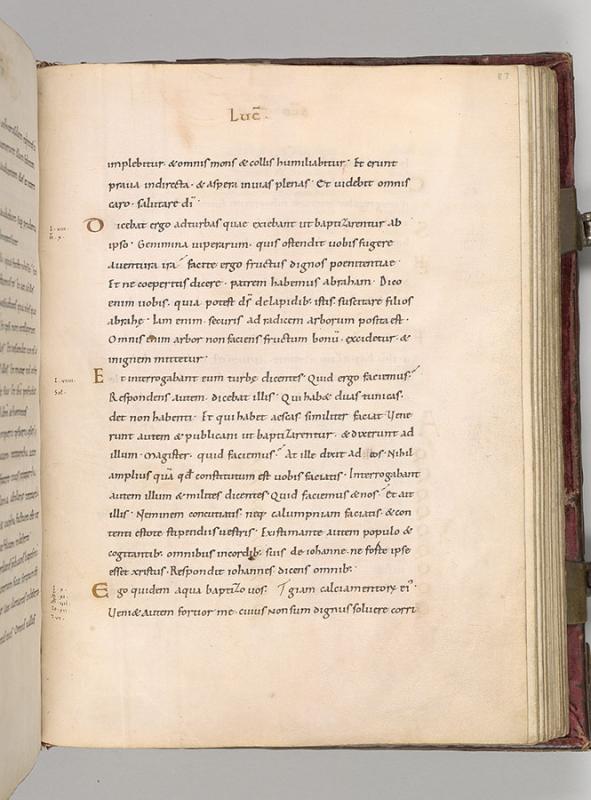 87
Luc̄.
implebitur· & omnis mons & collis humiliabitur· Et erunt
praua indirecta· & aspera inuias plenas· Et uidebit omnis
caro· salutare dī·
Dicebat ergo adturbas quae exiebant ut baptizarentur ab
ipso· Genimina uiperarum· quis ostendit uobis fugere
auentura ira facite ergo fructus dignos poenitentiae·
Et ne coeperitis dicere· patrem habemus abraham· Dico
enim uobis· quia potest ds̄ delapidib; istis suscitare filios
abrahę· Iam enim· securis ad radicem arborum posita est·
Omnis enim arbor non faciens fructum bonū· excidetur· &
inignem mittetur·
Et interrogabant eum turbę dicentes· Quid ergo faciemus?
Respondens autem· dicebat illis· Qui hab& duas tunicas·
det non habenti· Et qui habet aescas similiter faciat Vene
runt autem & publicani ut baptizarentur· & dixerunt ad
illum· Magister· quid faciemus? At ille dixit ad eos· Nihil
amplius quā qđ constitutum est uobis faciatis· Interrogabant
autem illum & milites dicentes Quid faciemus & nos? Et ait
illis· Neminem concutiatis· neq; calumpniam faciatis· & con
tenti estote stipendiis uestris· Existimante autem populo &
cogitantib; omnibus incordib; suis de iohanne· ne forte ipse
esset xristus· Respondit iohannes dicens omnib;
Ego quidem aqua baptizo uos·
Veni& autem fortior me· cuius non sum dignus soluere corri
giam calciamentorꝝ ei'·